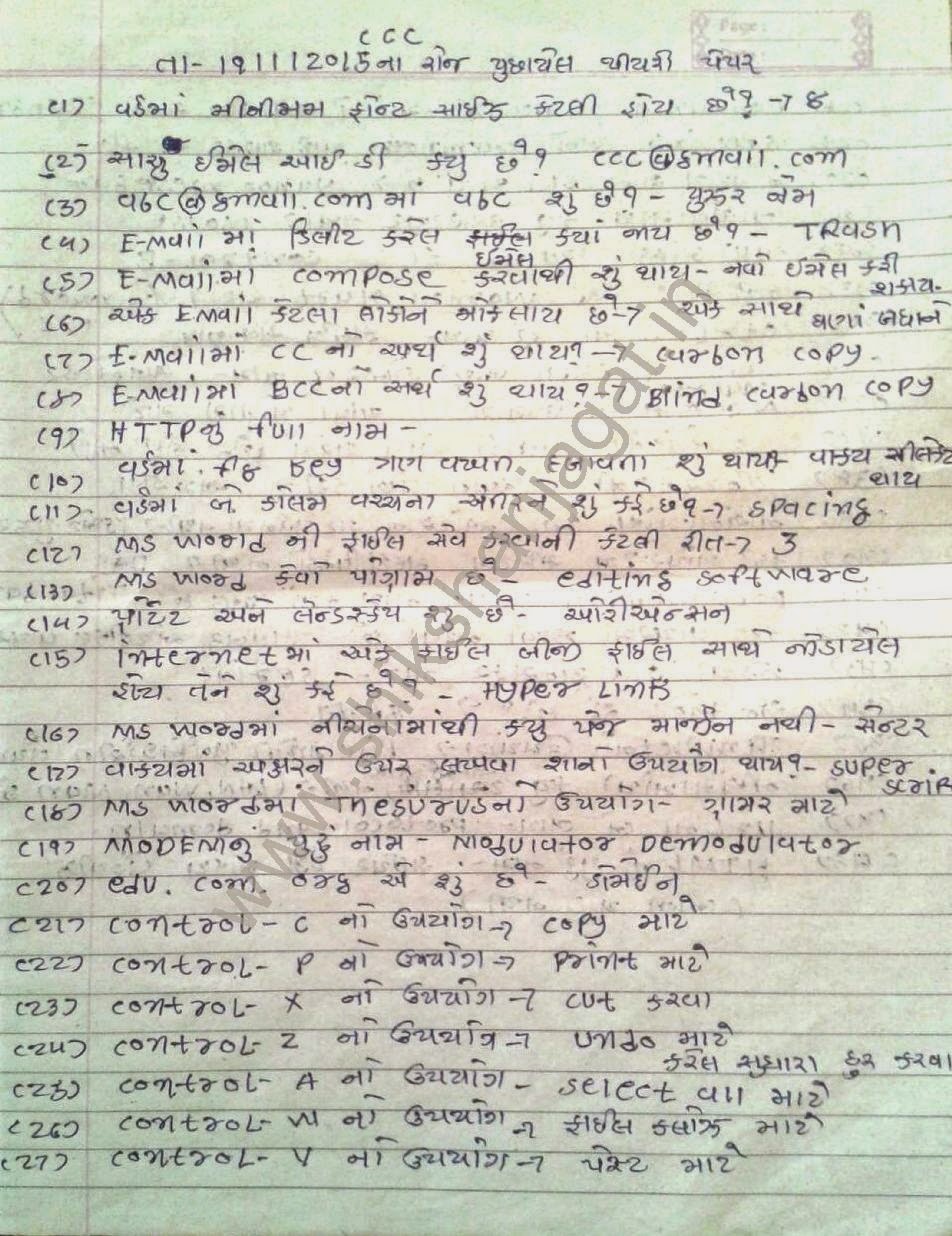 CCC
તા- 19111 2015ના રોજ પુછાયેલ થીયરી પેપર
(1) વર્ડમાં મીનીમમ ફોન્ટ સાઈઝ કેટલી હોય છે? → 8
(2) સાચું ઈમેલ આઈ ડી ક્યું છે? ccc@gmail.com
(3) abc@gmail.com માં abc શું છે? - યુઝર નેમ
(4) E-mail માં ડિલીટ કરેલ ઈમેલ ક્યાં જાય છે? - TRash
(5) E-mailમાં compose કરવાથી શું થાય - નવો ઈમેલ કરી શકાય.
(6) એક Email કેટલા લોકોને મોકલાય છે → એક સાથે ઘણાં બધાને
(7) E-mailમાં CC નો અર્થ શું થાય? → carbon copy.
(8) E-mailમાં BCCનો અર્થ શું થાય? → Blind carbon copy
(9) HTTPનું full નામ -
(10) વર્ડમાં Key ત્રણ વખત દબાવતાં શું થાય - વાક્ય સીલેક્ટ થાય
(11) વર્ડમાં બે કોલમ વચ્ચેના અંતરને શું કહે છે? → spacing
(12) MS Word ની ફાઈલ સેવ કરવાની કેટલી રીત → 3
(13) MS Word કેવો પોગ્રામ છે - editing software
(14) પોર્ટેટ અને લેન્ડસ્કેપ શુ છે - ઓરીએન્સન
(15) internetમાં એક ફાઈલ બીજી ફાઈલ સાથે જોડાયેલ
હોય તેને શું કહે છે? - Hyper Link
(16) MS Wordમાં નીચેનામાંથી ક્યું પેજ માર્જીન નથી - સેન્ટર
(17) વાક્યમાં અક્ષરને ઉપર લખવા શાનો ઉપયોગ થાય? - super script
(18) MS Wordમાં Thesurusનો ઉપયોગ - ગ્રામર માટે
(19) MODEMનું પુરું નામ - Modulator Demodulator
(20) edu. com. org એ શું છે - ડોમેઈન
(21) control - C નો ઉપયોગ → copy માટે
(22) control - P નો ઉપયોગ → print માટે
(23) control - X નો ઉપયોગ → cut કરવા
(24) control - Z નો ઉપયોગ → undo માટે
કરેલ સુધારા દુર કરવા
(25) control - A નો ઉપયોગ - select all માટે
(26) control - W નો ઉપયોગ → ફાઈલ ક્લોઝ માટે
(27) control - V નો ઉપયોગ → પેસ્ટ માટે
www.shikshanjagat.in
Page: